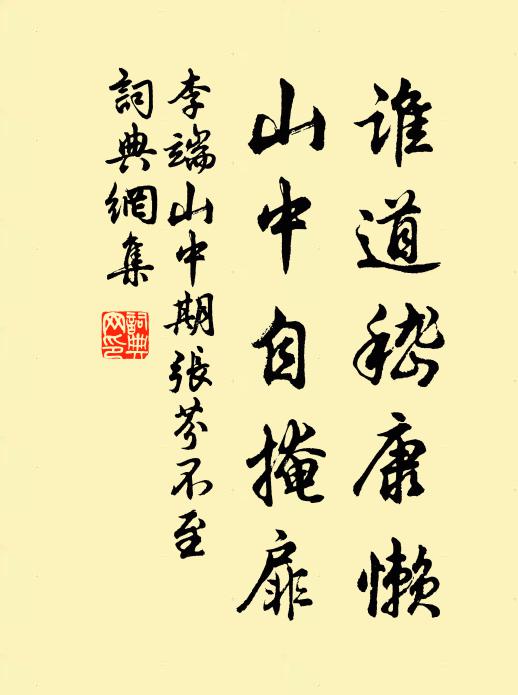 誰道嵇康懶
山中自掩扉
李端山中期張芬不至
詞典網集
詞典
网印